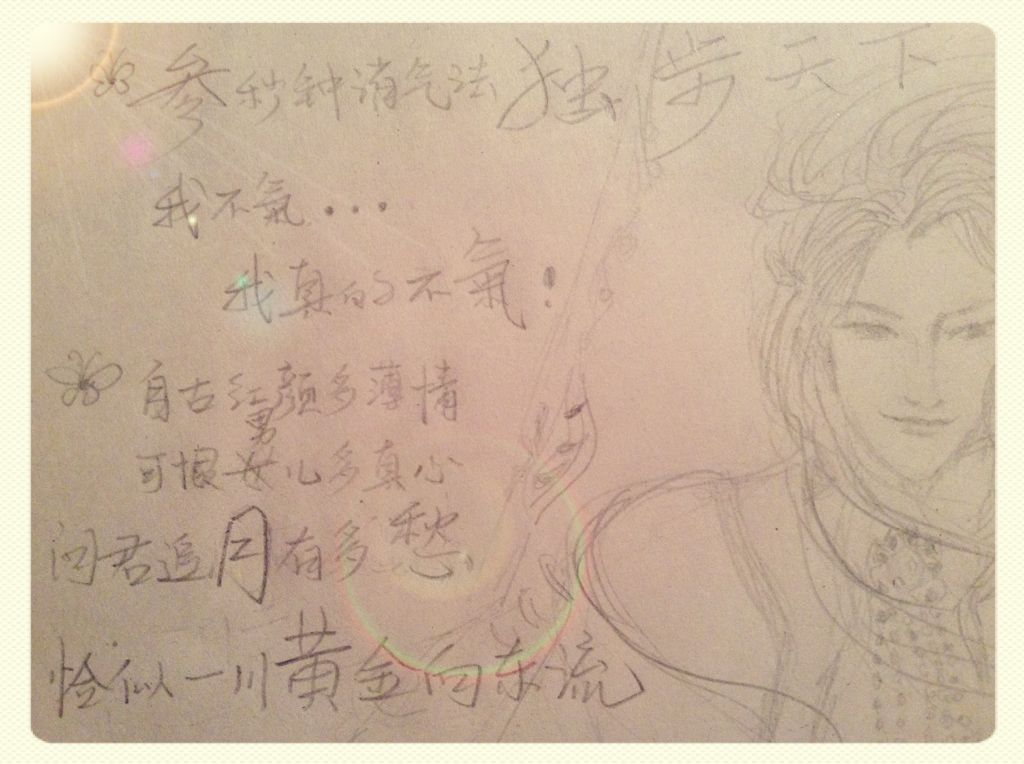 参秒钟消气法 独步天下
我不氣...
我真的不氣!
自古红颜多薄情
男
可恨女儿多真心
问君追月有多愁
恰似一川黄金向东流